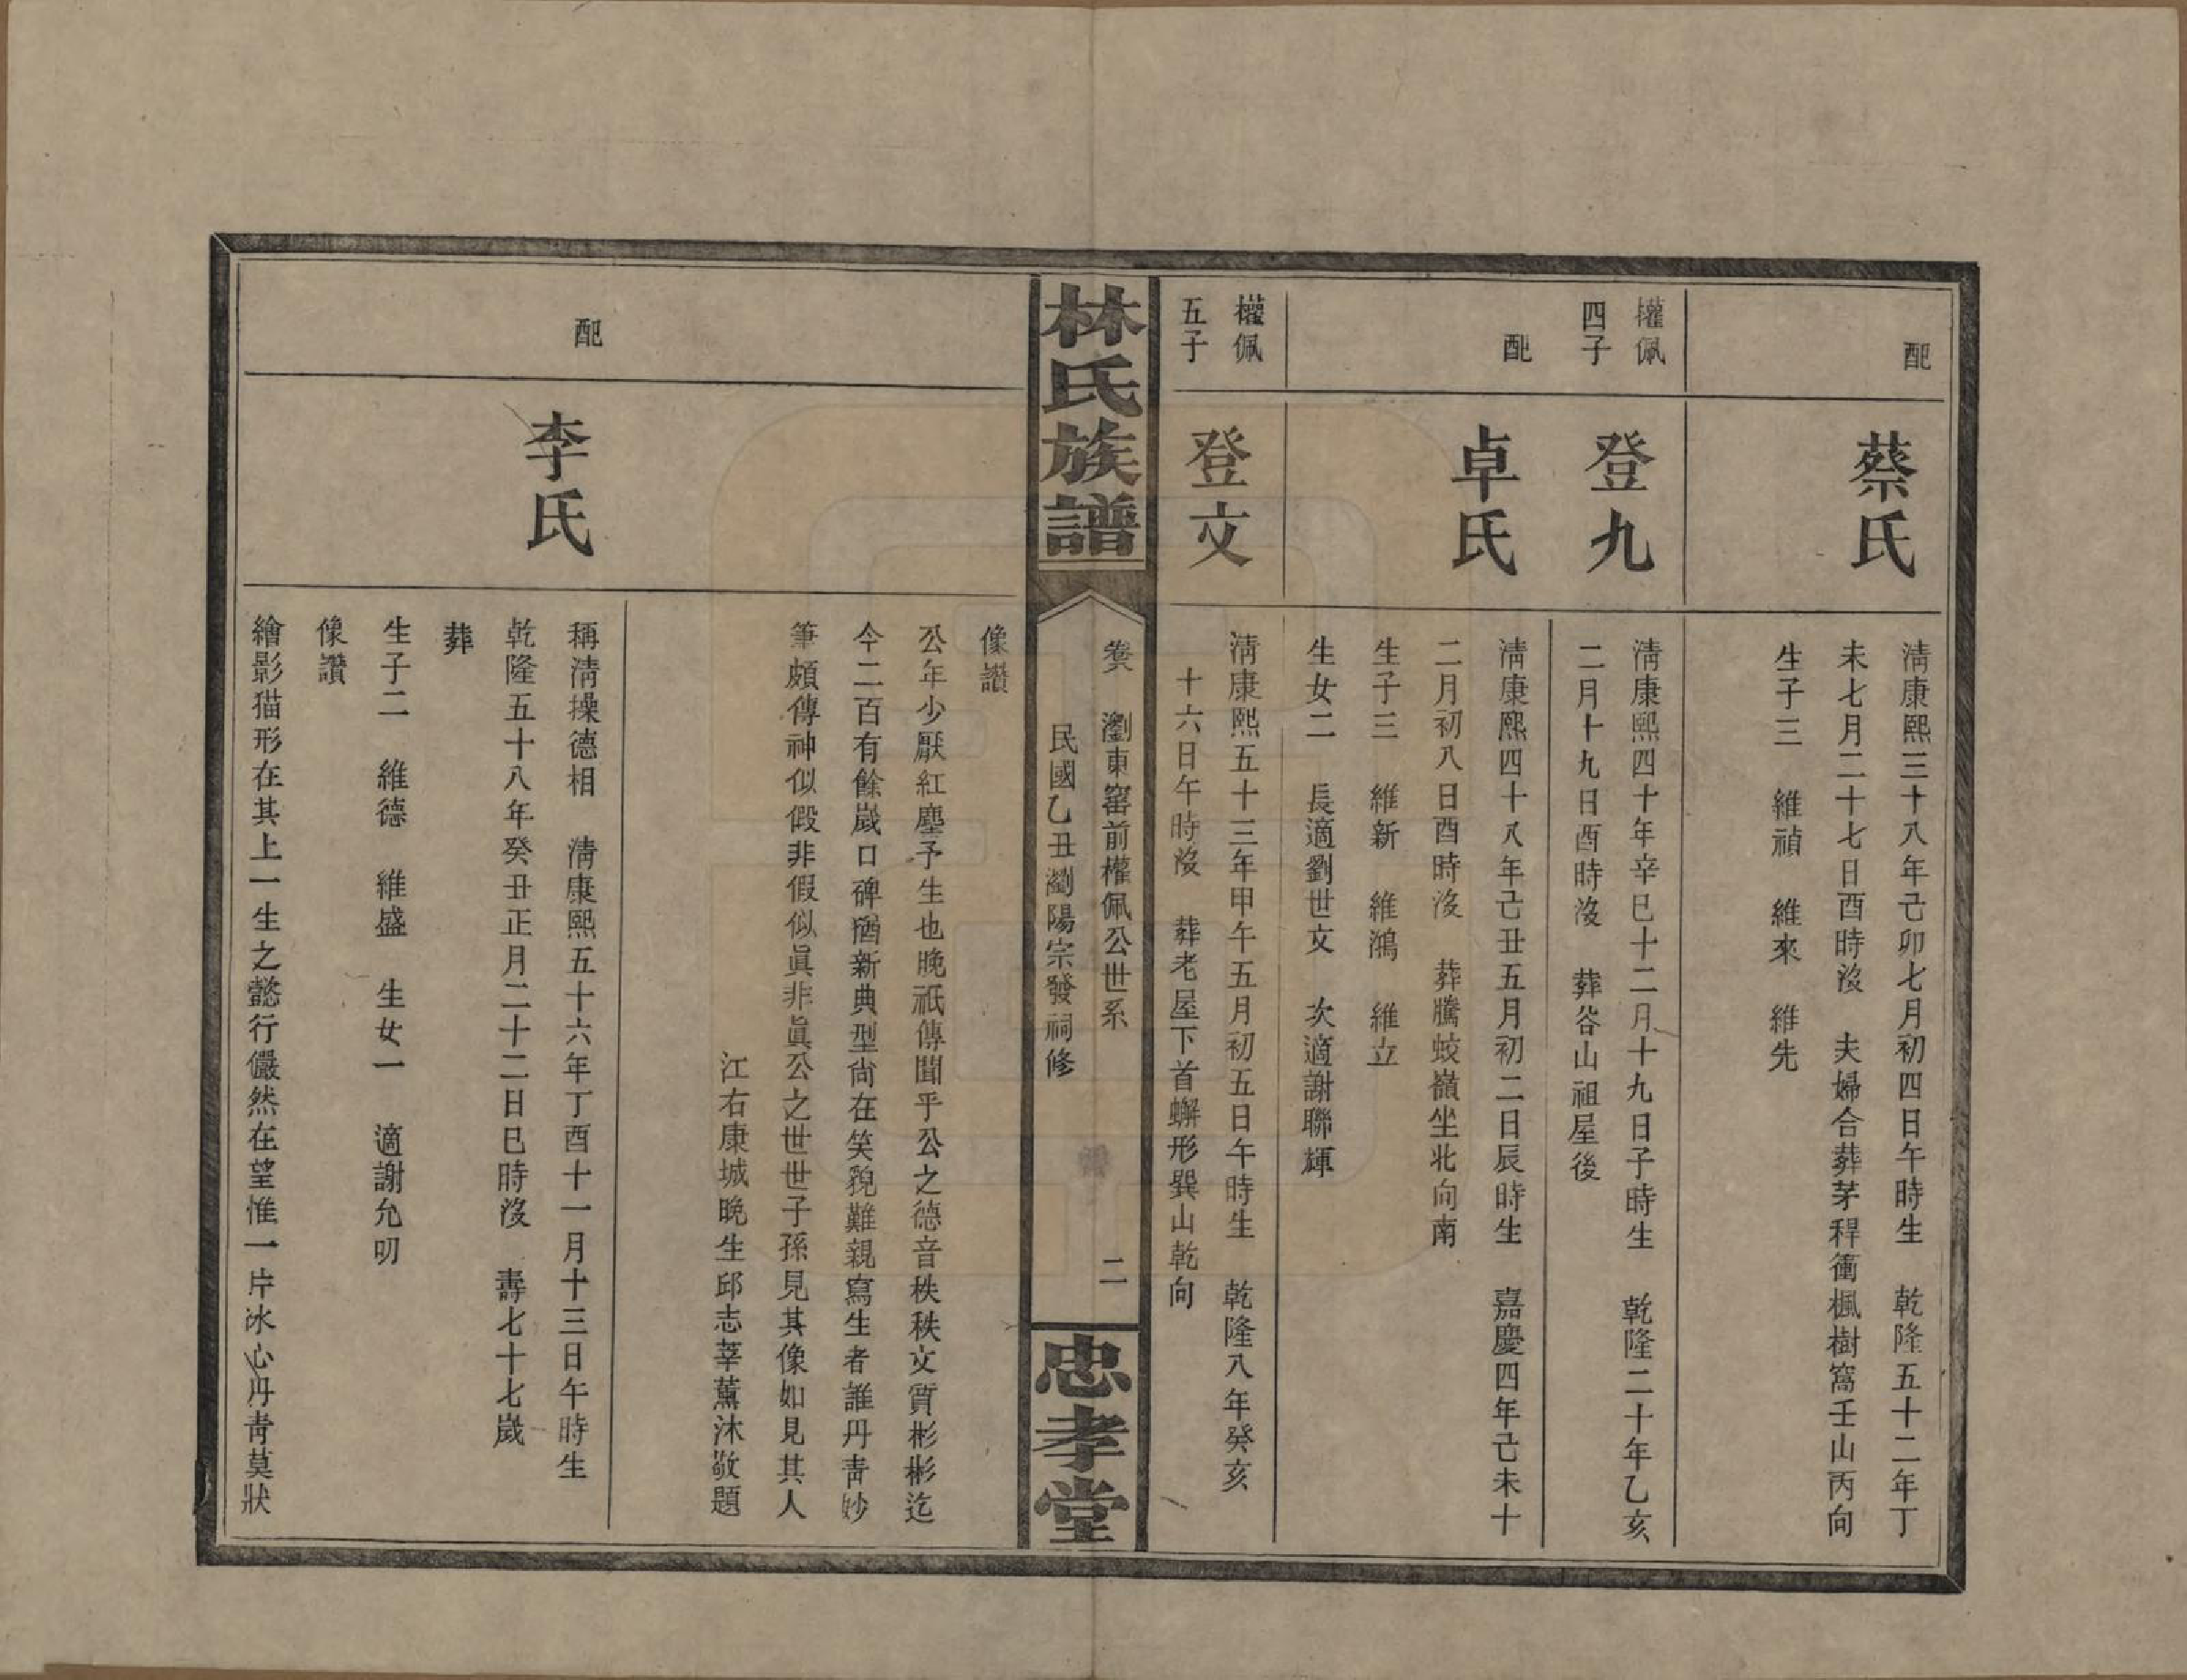 配
蔡氏
淸康熙三十八年己卯七月初四日午時生　乾隆五十二年丁
未七月二十七日酉時沒　夫婦合葬茅稈衝楓樹窩壬山丙向
生子三　維禎　維來　維先
權佩
四子
登九
淸康熙四十年辛巳十二月十九日子時生　乾隆二十年乙亥
二月十九日酉時沒　葬谷山祖屋後
配
卓氏
淸康熙四十八年己丑五月初二日辰時生　嘉慶四年己未十
二月初八日酉時沒　葬騰蛟嶺坐北向南
生子三　維新　維鴻　維立
生女二　長適劉世文　次適謝聯輝
權佩
五子
登文
淸康熙五十三年甲午五月初五日午時生　乾隆八年癸亥
十六日午時沒　葬老屋下首蠏形巽山乾向
林氏族譜
卷六　瀏東窰前權佩公世系　二
民國乙丑瀏陽宗發祠修
忠孝堂
像讚
公年少厭紅塵予生也晚祇傳聞乎公之德音秩秩文質彬彬迄
今二百有餘嵗口碑猶新典型尙在笑貌難親寫生者誰丹靑妙
筆頗傳神似假非假似眞非眞公之世世子孫見其像如見其人
江右康城晚生邱志莘薰沐敬題
配
李氏
稱淸操德相　淸康熙五十六年丁酉十一月十三日午時生
乾隆五十八年癸丑正月二十二日巳時沒　壽七十七嵗
葬
生子二　維德　維盛　生女一　適謝允叨
像讚
繪影猫形在其上一生之懿行儼然在望惟一片冰心丹靑莫狀